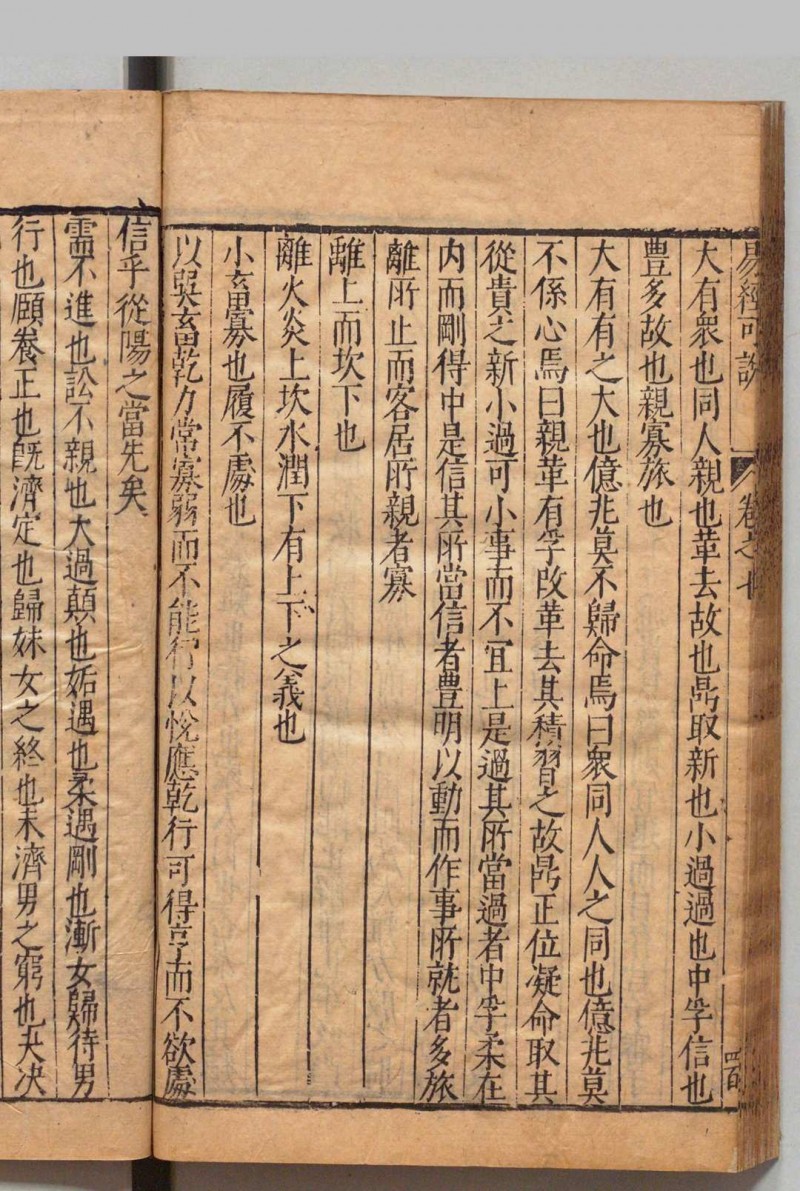 易經可說 卷之七
大有衆也同人親也革去故也鼎取新也小過過也中孚信也
豊多故也親寡旅也
大有有之大也億兆莫不歸命焉曰衆同人人之同也億兆莫
不係心焉曰親革有孚改革去其積習之故鼎正位凝命取其
從貴之新小過可小事而不宜上是過其所當過者中孚柔在
内而剛得中是信其所當信者豊明以動而作事所就者多旅
離所止而客居所親者寡
離上而坎下也
離火炎上坎水潤下有上下之義也
小畜寡也履不處也
以巽畜乾力常寡弱而不能行以悅應乾行可得亨而不欲處
信乎從陽之當先矣
需不進也訟不親也大過顛也姤遇也柔遇剛也漸女歸待男
行也頤養正也旣濟定也歸妹女之終也未濟男之窮也夬決